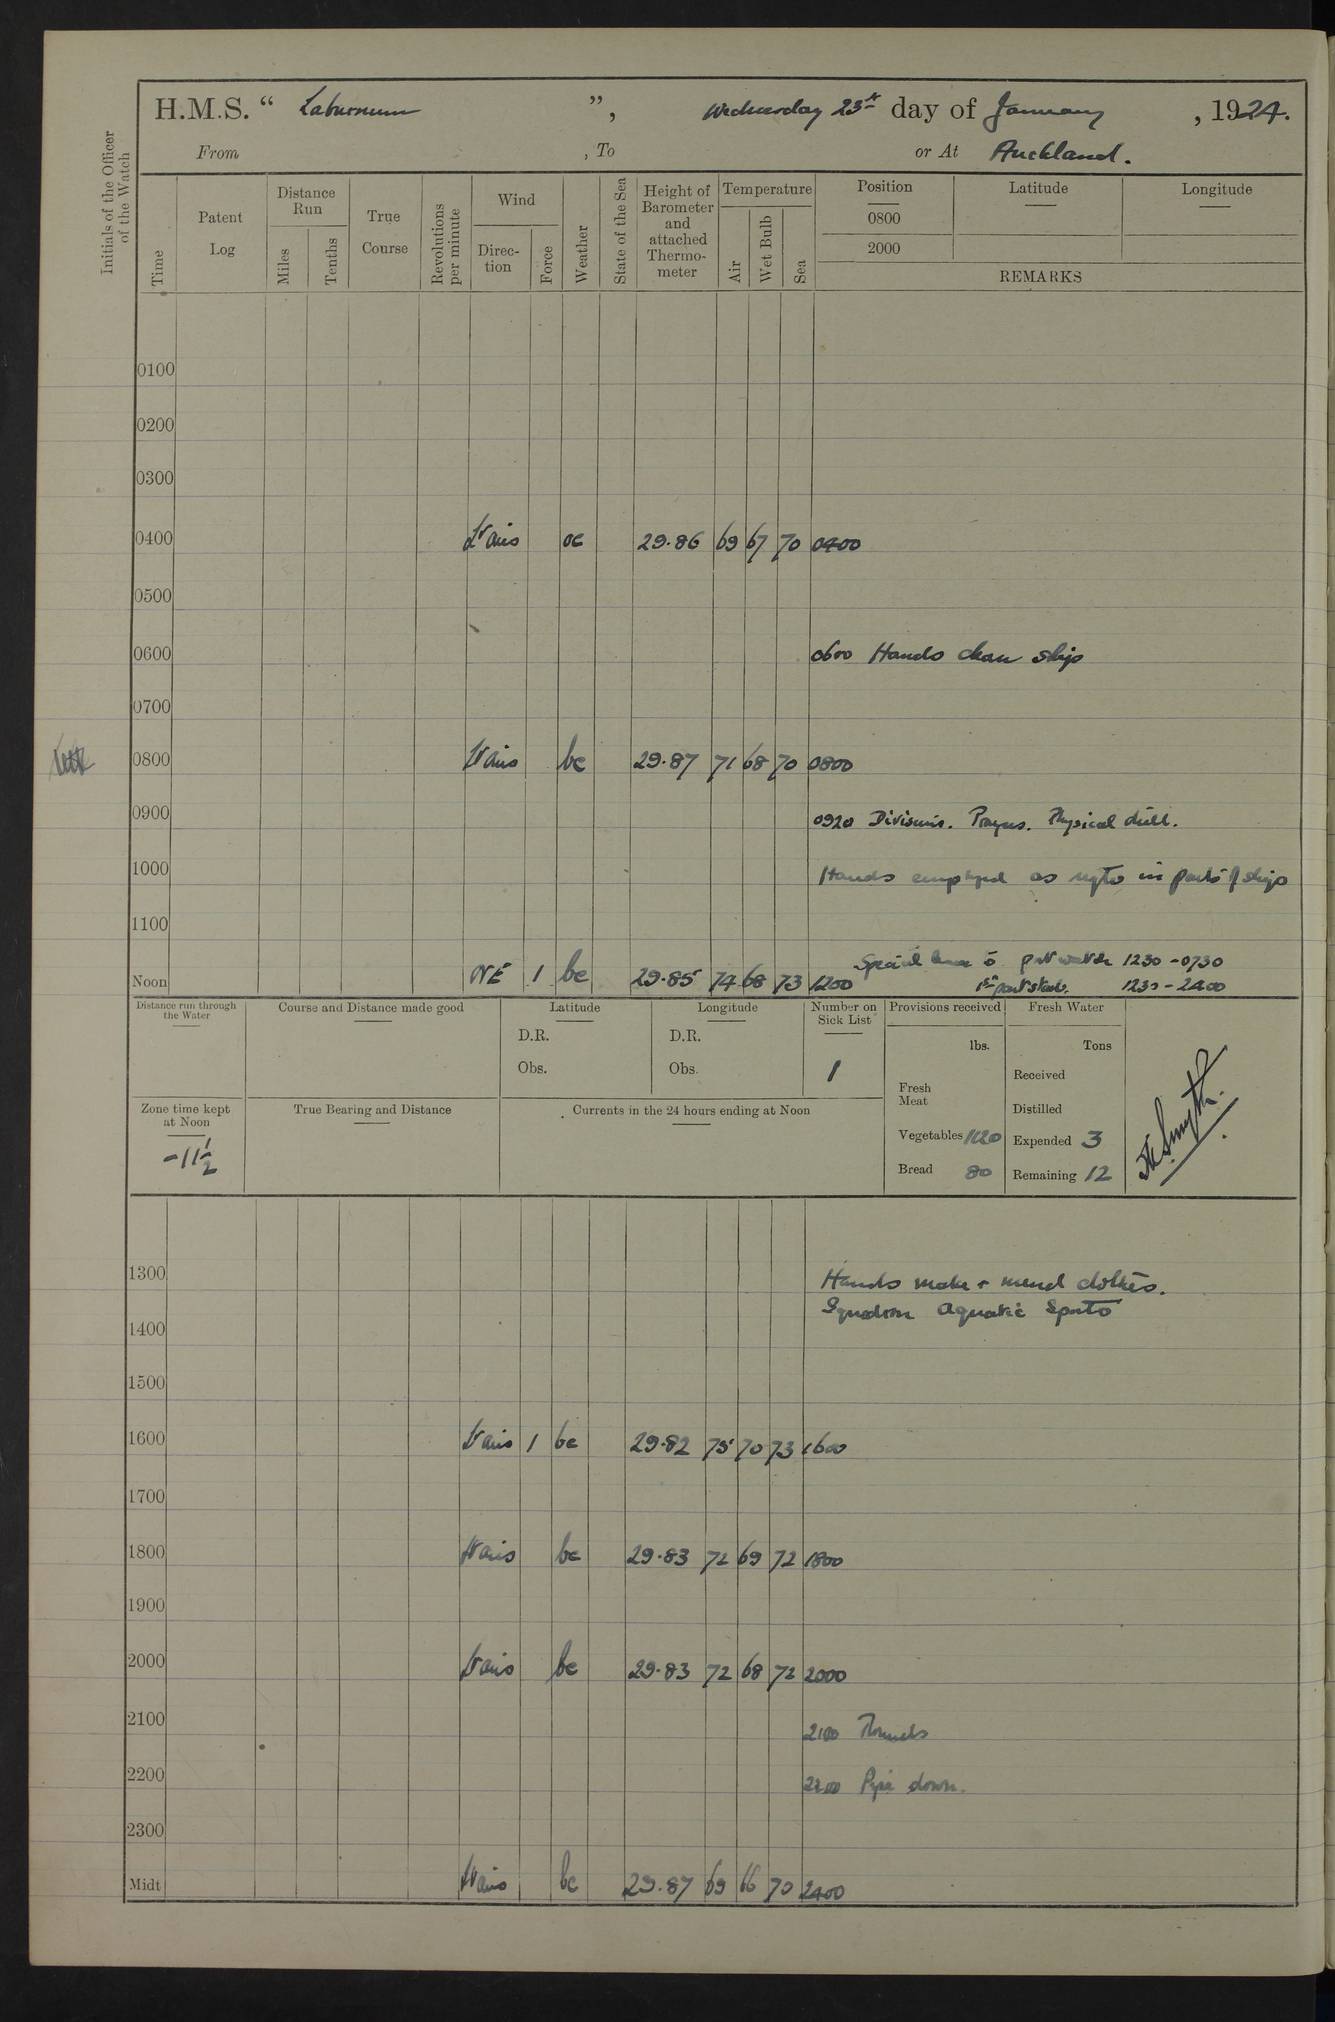 H.M.S. “ Laburnum ”, Wednesday 23rd day of January, 1924.
From , To or At Auckland.
Initials of the Officer of the Watch
Time
Patent Log
Distance Run
Miles
Tenths
True Course
Revolutions per minute
Wind
Direction
Force
Weather
State of the Sea
Height of Barometer and attached Thermometer
Temperature
Air
Wet Bulb
Sea
Position
0800
2000
Latitude
Longitude
REMARKS
0100
0200
0300
0400 Lt airs oc 29.86 69 67 70 0400
0500
0600 0600 Hands clean ship
0700
0800 Lt airs bc 29.87 71 68 70 0800
0900 0920 Divisions. Prayers. Physical drill.
1000 Hands employed as reqte in parts of ship
1100
Special leave to part watch 1230 - 0730
Noon NE 1 bc 29.85 74 68 73 1200 1st part stbds. 1230 - 2400
Distance run through the Water
Course and Distance made good
Latitude
D.R.
Obs.
Longitude
D.R.
Obs.
Number on Sick List
1
Provisions received
lbs.
Fresh Meat
Vegetables 120
Bread 80
Fresh Water
Tons
Received
Distilled
Expended 3
Remaining 12
Smyth.
Zone time kept at Noon
-11½
True Bearing and Distance
Currents in the 24 hours ending at Noon
1300 Hands make & mend clothes.
Squadron Aquatic Sports
1400
1500
1600 Lt airs 1 bc 29.82 75 70 73 1600
1700
1800 Lt airs bc 29.83 72 69 72 1800
1900
2000 Lt airs bc 29.83 72 68 72 2000
2100 2100 Rounds
2200 2200 Pipe down.
2300
Midt Lt airs bc 29.87 69 66 70 2400